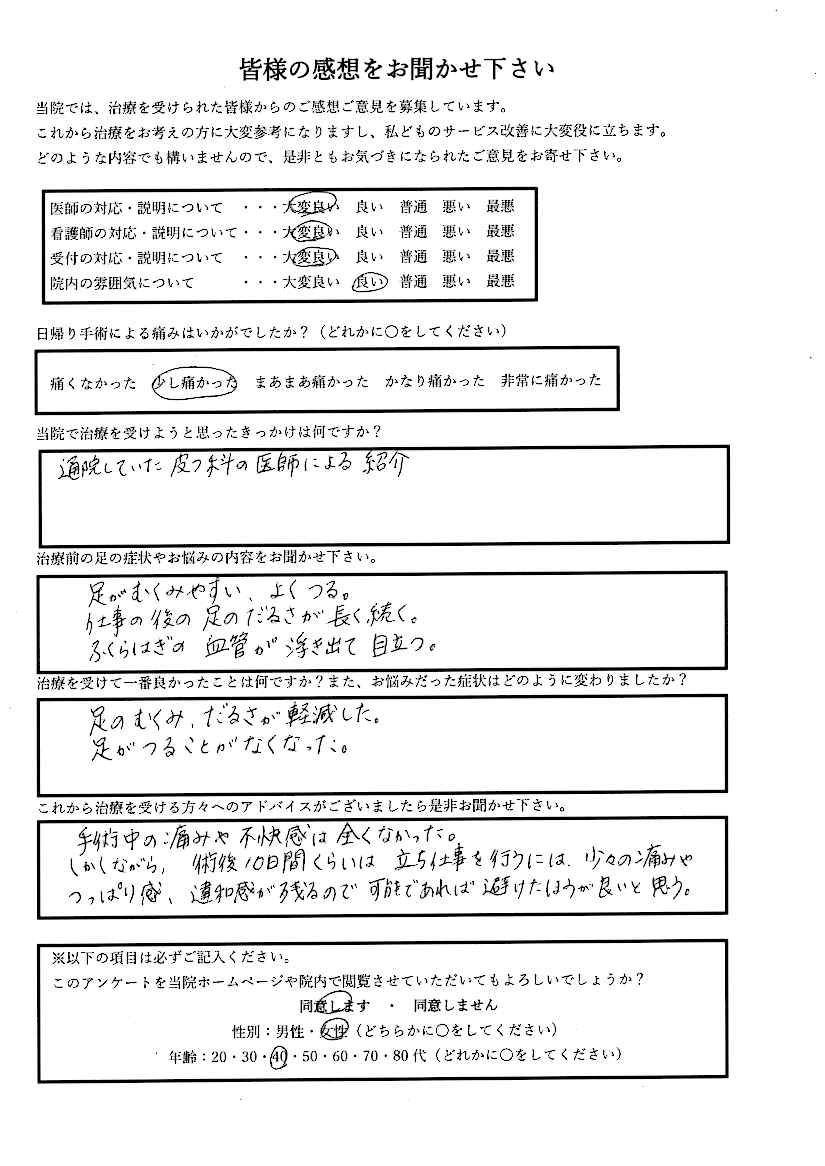 皆様の感想をお聞かせ下さい
当院では、治療を受けられた皆様からのご感想ご意見を募集しています。
これから治療をお考えの方に大変参考になりますし、私どものサービス改善に大変役に立ちます。
どのような内容でも構いませんので、是非ともお気づきになられたご意見をお寄せ下さい。
医師の対応・説明について ・・・大変良い 良い 普通 悪い 最悪
看護師の対応・説明について・・・大変良い 良い 普通 悪い 最悪
受付の対応・説明について ・・・大変良い 良い 普通 悪い 最悪
院内の雰囲気について ・・・大変良い 良い 普通 悪い 最悪
日帰り手術による痛みはいかがでしたか？（どれかに〇をしてください）
痛くなかった 少し痛かった まあまあ痛かった かなり痛かった 非常に痛かった
当院で治療を受けようと思ったきっかけは何ですか？
通院していた皮フ科の医師による紹介
治療前の足の症状やお悩みの内容をお聞かせ下さい。
足がむくみやすい、よくつる。
仕事の後の足のだるさが長く続く。
ふくらはぎの血管が浮き出て目立つ。
治療を受けて一番良かったことは何ですか？また、お悩みだった症状はどのように変わりましたか？
足のむくみ、だるさが軽減した。
足がつることがなくなった。
これから治療を受ける方々へのアドバイスがございましたら是非お聞かせ下さい。
手術中の痛みや不快感は全くなかった。
しかしながら、術後10日間くらいは立ち仕事を行うには、少々の痛みや
つっぱり感、違和感が残るので可能であれば避けたほうが良いと思う。
※以下の項目は必ずご記入ください。
このアンケートを当院ホームページや院内で閲覧させていただいてもよろしいでしょうか？
同意します ・ 同意しません
性別：男性・女性（どちらかに〇をしてください）
年齢：20・30・40・50・60・70・80代（どれかに〇をしてください）